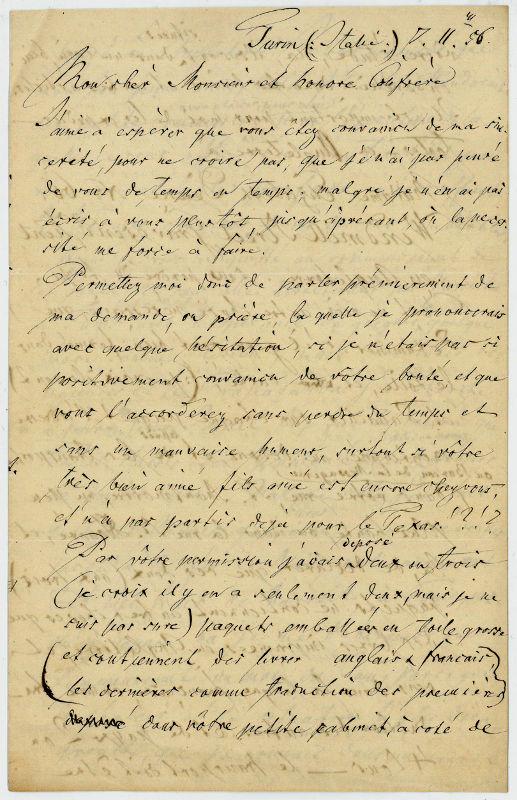 Turin (: Italie :) 7. 11. 56.
Mon cher Monsieur et honoré Confrère
J'aime à espérer que vous étez convaincu de ma sin-
cerété pour ne croire pas, que je n'ai pas pensé
de vous de temps en temps; malgré je n'en ai pas
écris à vous plustôt jusqu'àpresant, où la neces-
sité me force à faire.
Permettez moi donc de parler prémièrement de
ma demande, ou prière la quelle je prononcerais
avec quelque hésitation, si je n'etais pas si
positivement convaincu de vôtre bonté, et que
vous l'accorderez sans perdre du temps et
sans un mauvaise humeur, surtout si vôtre
très bien aimé fils ainé est encore chez vous,
et n'a pas partis dejà pour le Texas!?!?
Par vôtre permission j'avais deposé deux ou trois
(je crois il y en a seulement deux mais je ne
suis pas sure) paquets emballées en toile grosse
(et contiennent des livres anglais & français,
les dernières comme traduction des premières)
dans vôtre pétite cabinet, à coté de